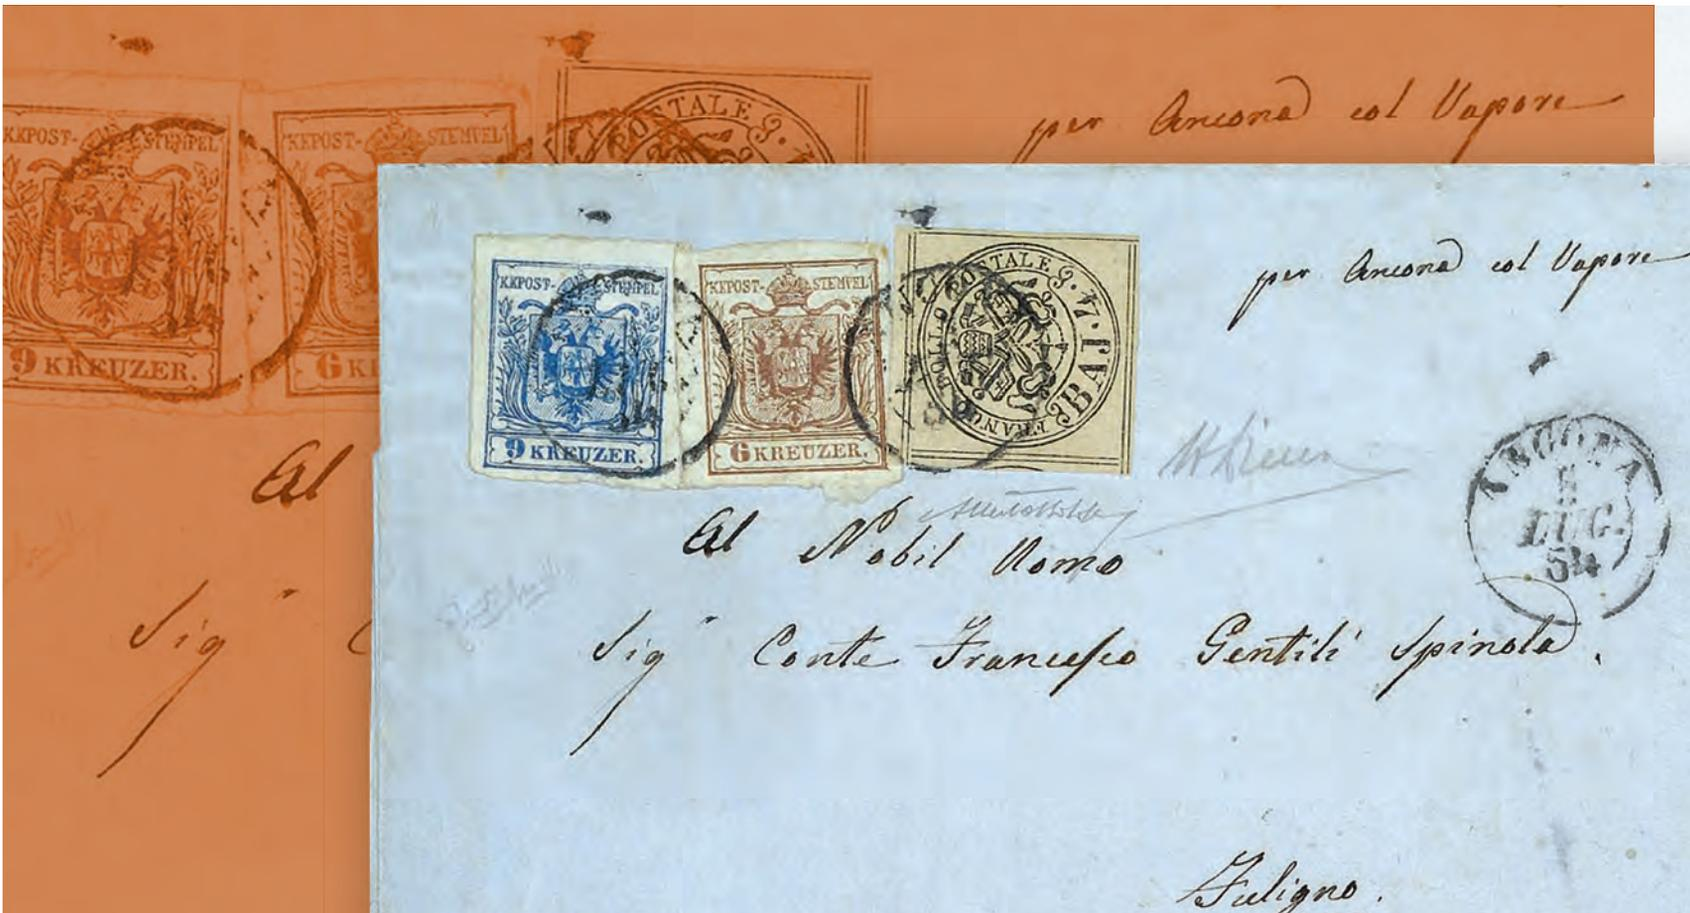 KKPOST-STEMPEL
9 KREUZER.
KKPOST-STEMPEL
6 K
POSTALE
per Ancona col Vapore
Al
Sig
KKPOST-STEMPEL
9 KREUZER.
KKPOST-STEMPEL
6 KREUZER.
FRANCO BOLLO POSTALE
BAJ. 7.
per Ancona col Vapore
ANCONA
LUG.
54
Al Nobil Uomo
Sig" Conte Francesco Gentili Spinola.
Fuligno.